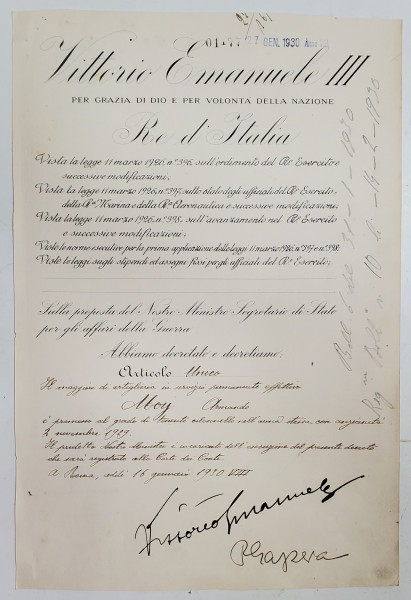 0147727 GEN. 1930
Vittorio Emanuele III
PER GRAZIA DI DIO E PER VOLONTÀ DELLA NAZIONE
Re d'Italia
Vista la legge 11 marzo 1926, n.º 396, sull'ordinamento del Rº Esercito e
successive modificazioni;
Vista la legge 11 marzo 1926, n.º 397, sullo stato degli ufficiali del Rº Esercito,
della Rª Marina e della Rª Aeronautica e successive modificazioni;
Vista la legge 11 marzo 1926, n.º 398, sull'avanzamento nel Rº Esercito
e successive modificazioni;
Viste le norme esecutive per la prima applicazione delle leggi 11 marzo 1926, n.º 397 e n.º 398;
Viste le leggi sugli stipendi ed assegni fissi per gli ufficiali del Rº Esercito;
Sulla proposta del Nostro Ministro Segretario di Stato
per gli affari della Guerra
Abbiamo decretato e decretiamo:
Articolo Unico
Il maggiore di artiglieria in servizio permanente effettivo
Moy Armando
è promosso al grado di tenente colonnello nell'arma stessa, con anzianità
2 novembre 1929.
Il predetto Nostro Ministro è incaricato dell'esecuzione del presente decreto
che sarà registrato alla Corte dei Conti.
A Roma, addì 16 gennaio 1930 VIII
Vittorio Emanuele
P Gazzera
1930
Reg 10 14-2-1930